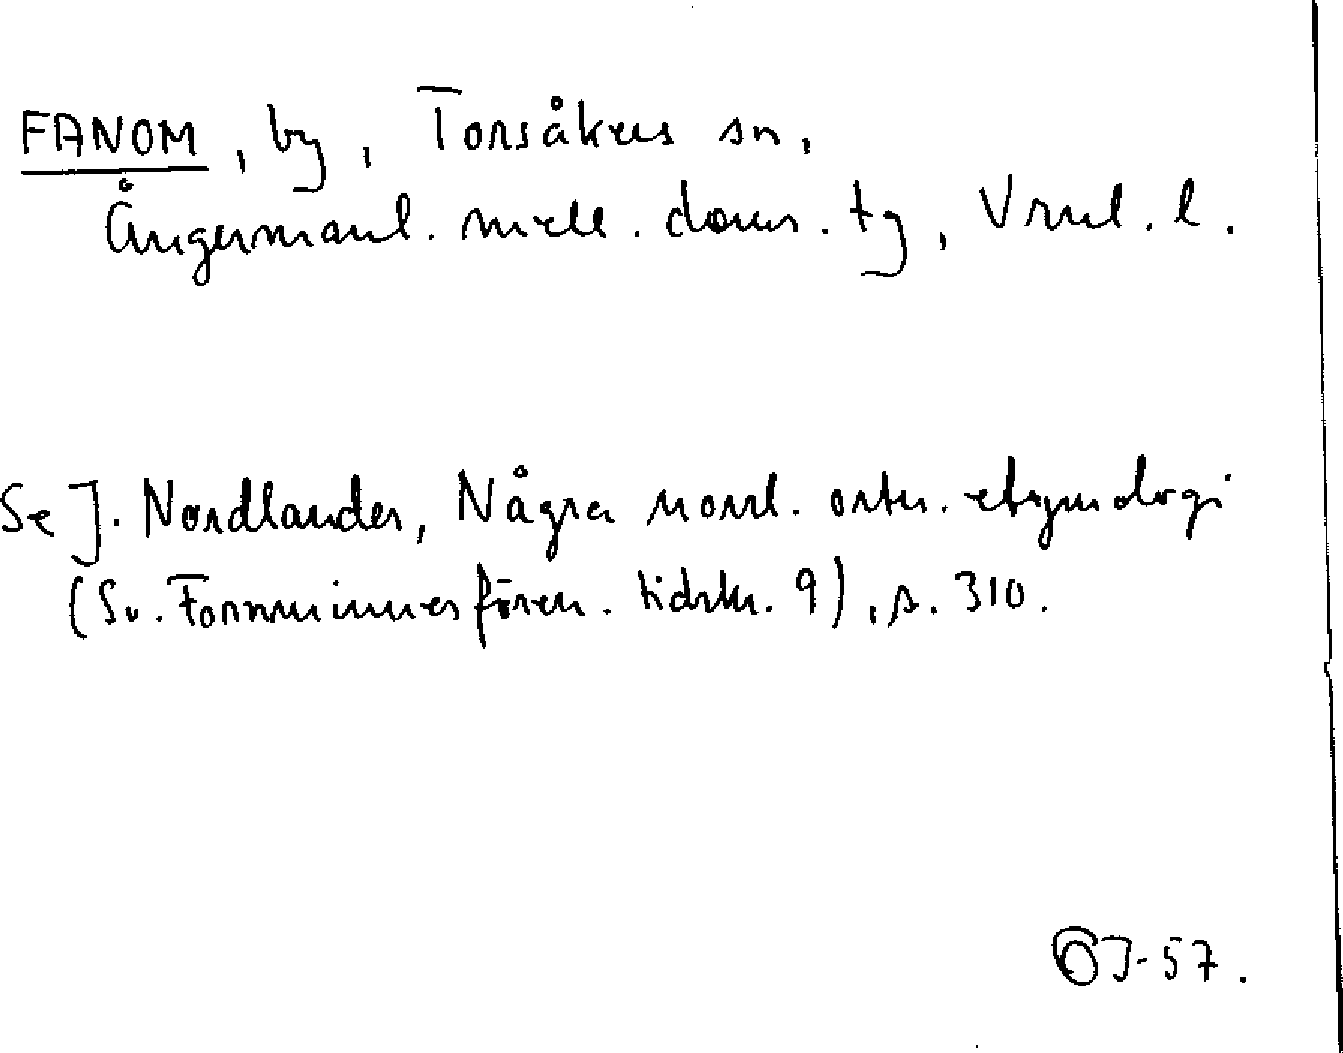 FANOM, by, Torsåkers sn,
Ångermanl. mell. doms. tg, Vrnl. l.
Se J. Nordlander, Några norrl. ortn. etymologi
(Sv. Fornminnesfören. tidskr. 9), s. 310.
ÖJ-57.